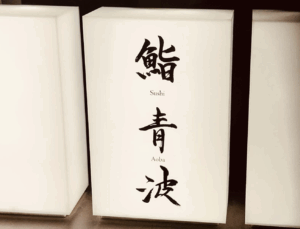 鮨
Sushi
青
Aoba
波